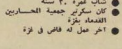 شاب عمره ٣٠ سنة
كان سكرتير جمعية المحاربين
القدماء بغزة
آخر عمل له قاض فى غزة